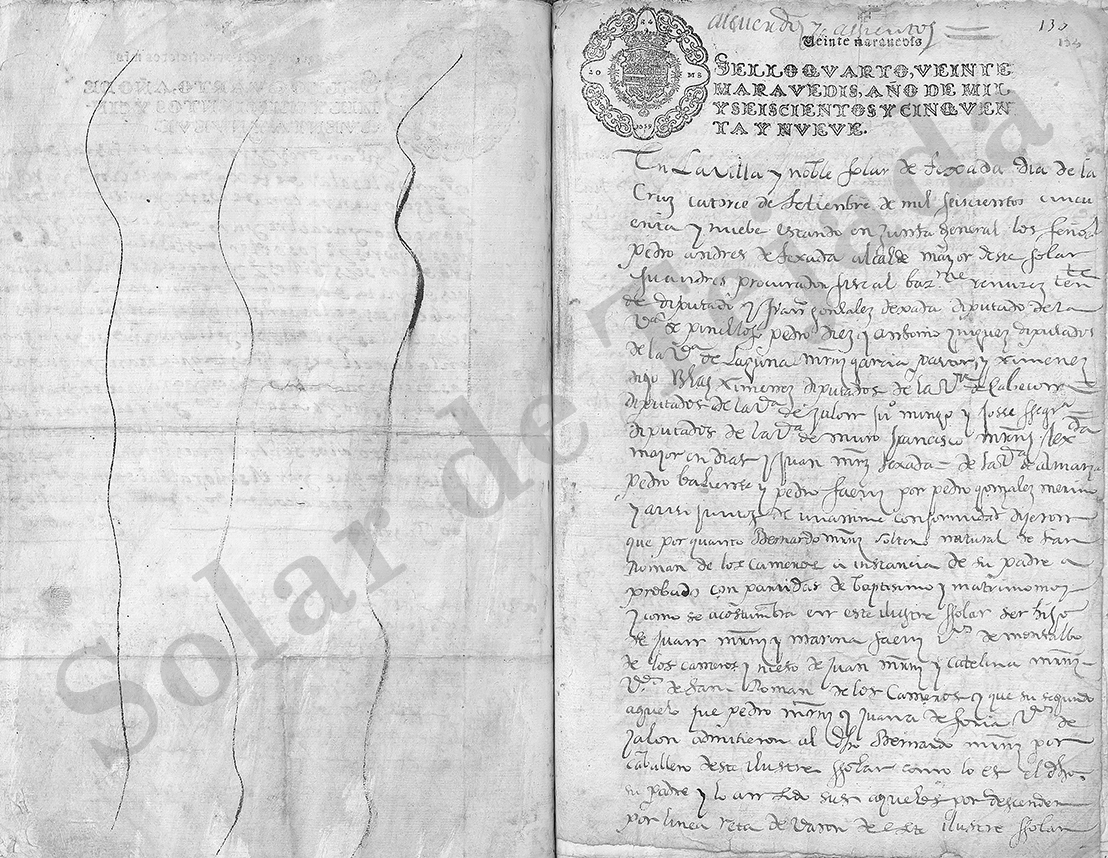 acuerdo y asientos
137
134
Veinte maravedis
SELLO QVARTO, VEINTE
MARAVEDIS, AÑO DE MIL
Y SEISCIENTOS Y CINQVEN
TA Y NVEVE.
En La Villa y noble solar de texada dia de la
Cruz catorce de setienbre de mil seiscientos cincu
enta y nuebe estando en Junta general los señores
pedro andres de texada alcalde mayor deste solar
procurador fiscal
de diputado y gonzalez texada diputado de la
Va de pinillos pedro diez y antonio yniguez diputados
de la Va de Laguna mrnz garcia pastor y ximenez
digo Blas Ximenez diputados de la Va de Cabeçon
diputados de la Va de Jalon mingo y Josse
diputados de la Va de muro francisco mrnz
mayor en dias y Juan mrnz texada de la Va de almarza
pedro y pedro saenz por pedro gonzalez merino
y ansi juntos de unanime conformidad dijeron
que por quanto Bernardo mrnz soltero natural de san
Roman de los Cameros a instancia de su padre a
probado con partidas de baptismo y matrimonio
y como se acostumbra en este ilustre ssolar ser hijo
de juan mrnz y marina saenz Vos de montalbo
de los cameros y nieto de Juan mrnz y catelina mrnz
Vos de san Roman de los Cameros y que su segundo
aguelo fue pedro mrnz y juana de soria Vos de
jalon admitieron al dho Bernardo mrnz por
caballero deste ilustre ssolar como lo es el dho
su padre y lo an sido sus aguelos por descender
por linea reta de varon de este ilustre ssolar
Solar de Tejada